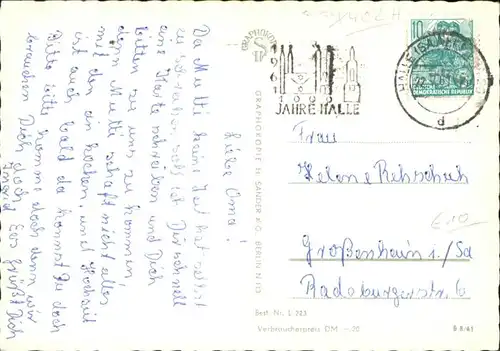 Liebe Oma!
Da Mutti keine Zeit hat selbst
zu schreiben, soll ich Dir schnell
eine Karte schreiben und Dich
bitten zu uns zu kommen,
denn Mutti schafft nicht alles
mit den Kochen, und Hochzeit
ist auch bald da kommst Du doch
Bitte bitte komme doch denn wir
brauchen Dich doch Es grüßt Dich
Ingrid
GRAPHOKOPIE H. SANDER K.G., BERLIN N 113
1961
1000
JAHRE HALLE
HALLE (SAALE)
d
10
DEUTSCHE
DEMOKRATISCHE REPUBLIK
Frau
Helene Rehschuh
Großenhain i/Sa
Radeburgerstr. 6
Best. Nr. L 723
Verbraucherpreis DM -.20
B 8/61